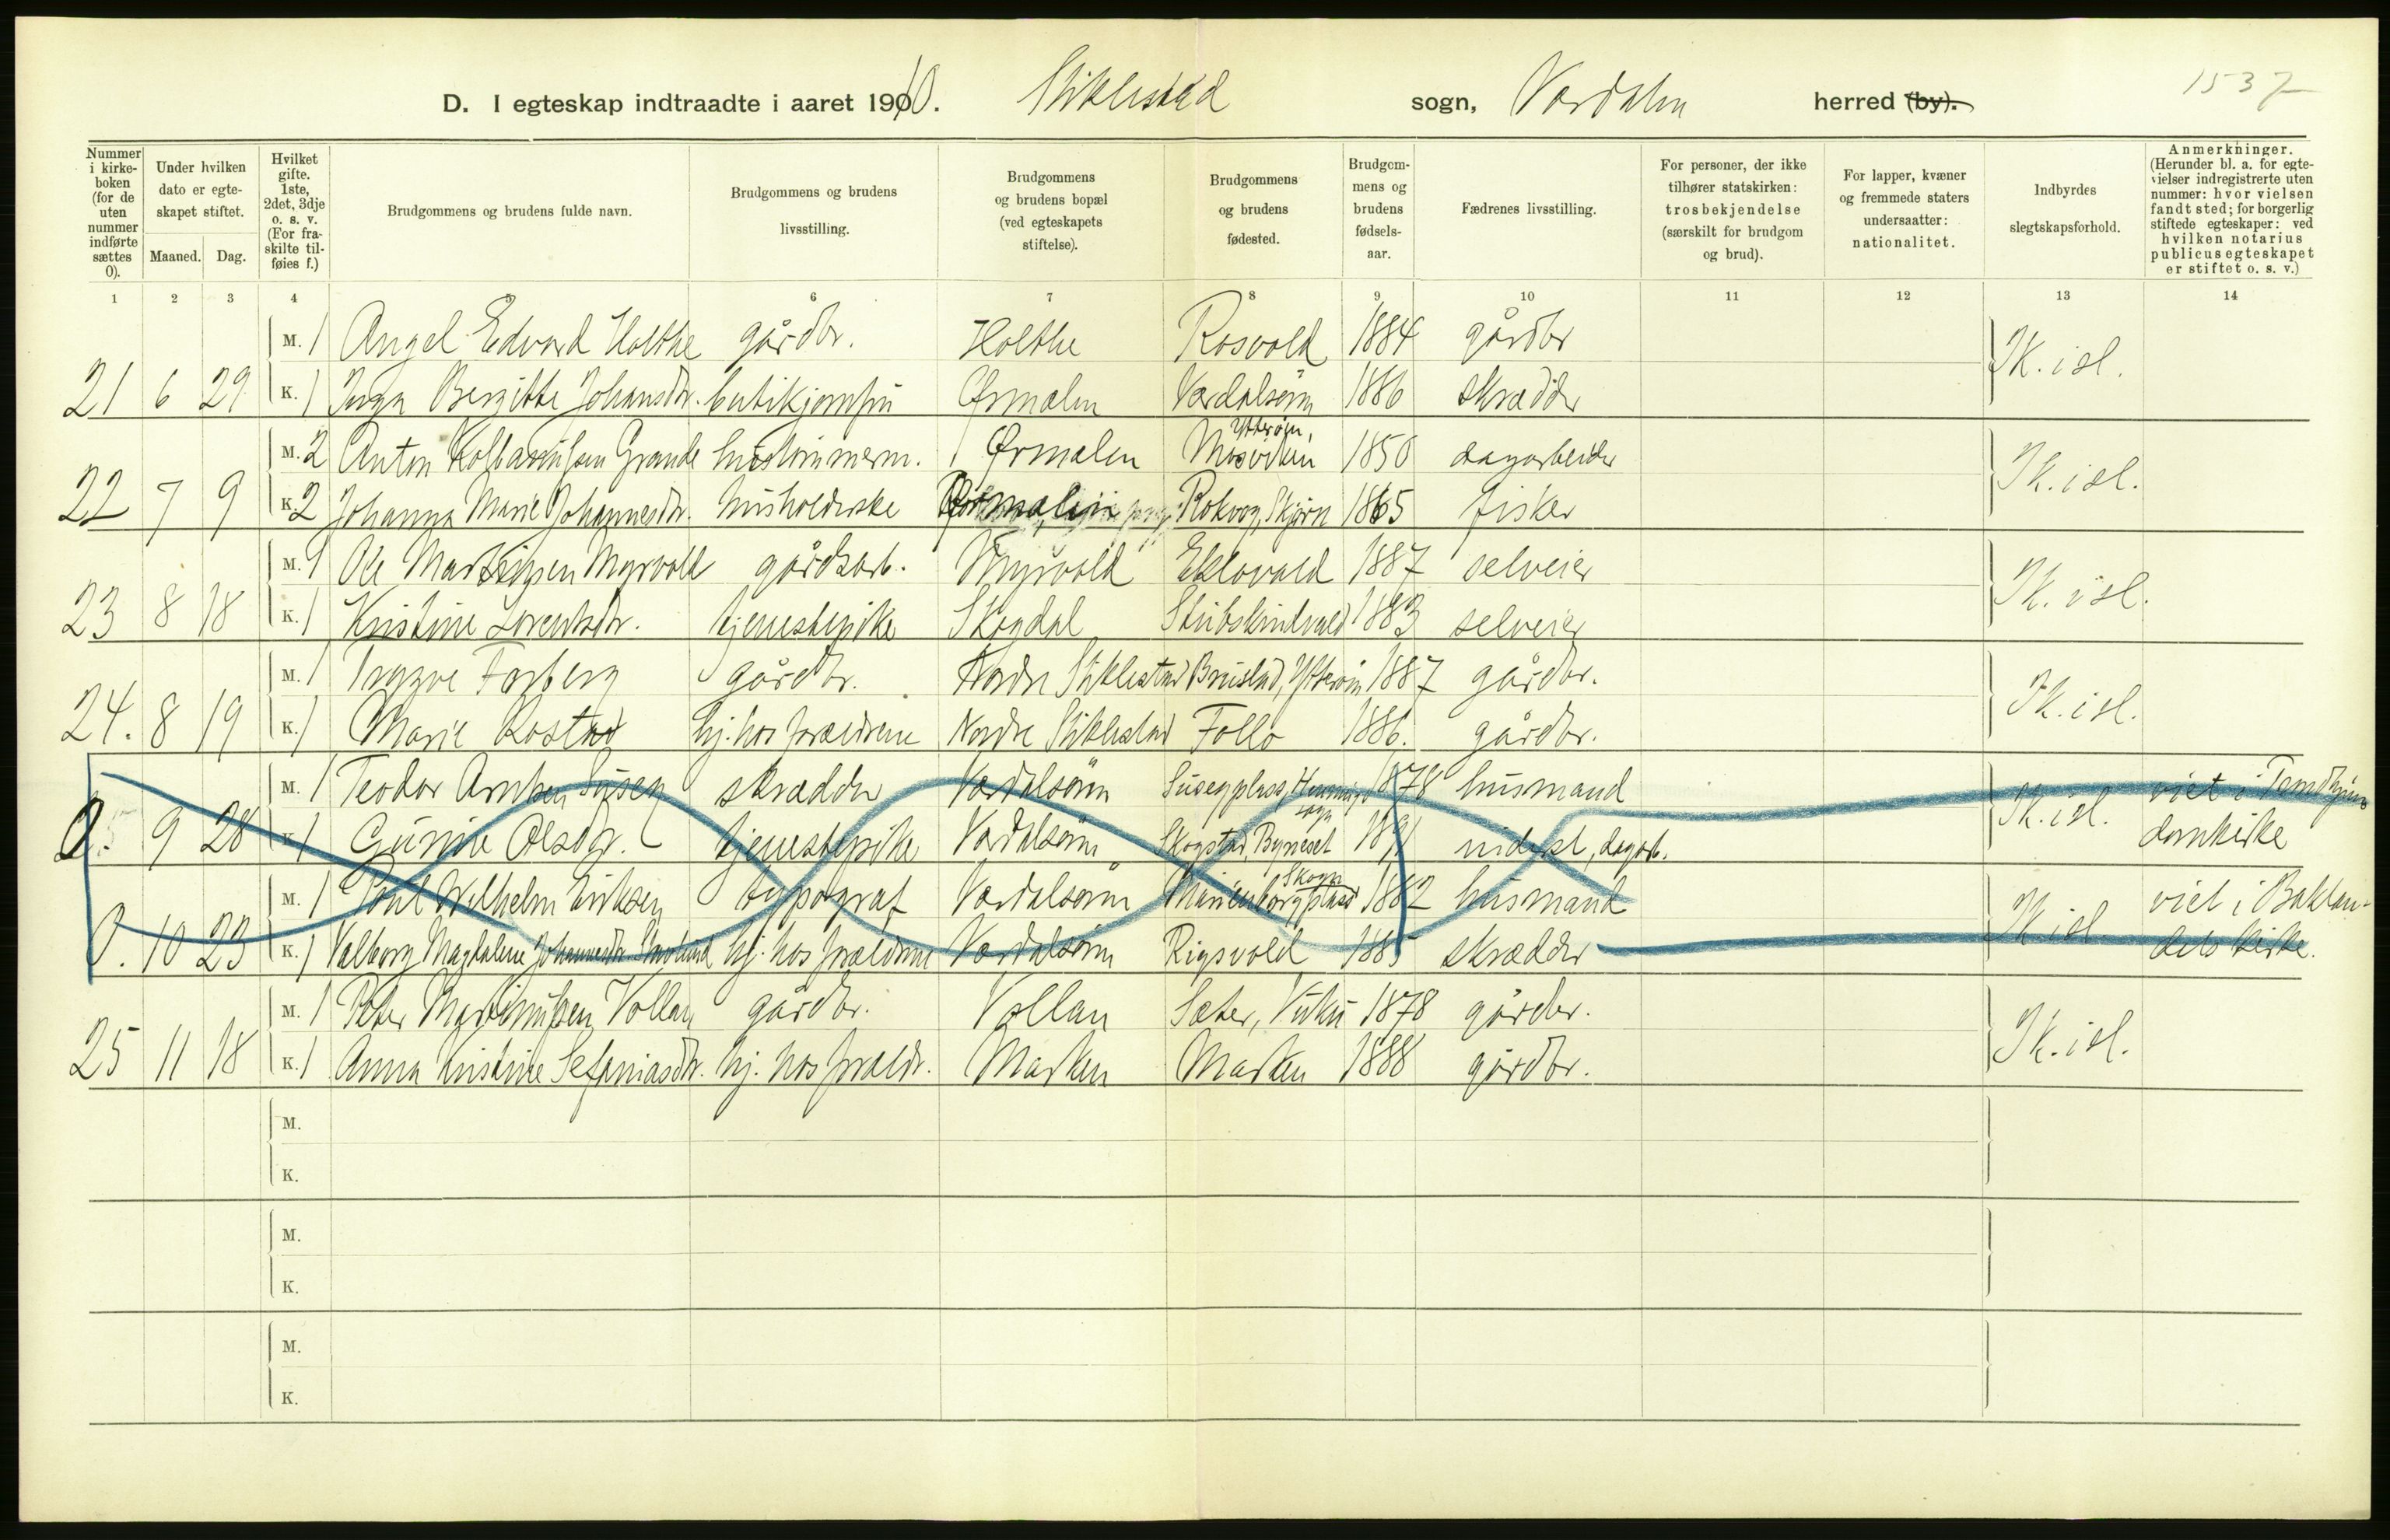 D. I egteskap indtraadte i aaret 1910. Stiklestad sogn, Værdalen herred (by). 1537
Nummer i kirke-boken (for de uten nummer indførte sættes 0).
Under hvilken dato er egte-skapet stiftet.
Maaned. Dag.
Hvilket gifte. 1ste, 2det, 3dje o. s. v. (For fra-skilte til-føies f.)
Brudgommens og brudens fulde navn.
Brudgommens og brudens livsstilling.
Brudgommens og brudens bopæl (ved egteskapets stiftelse).
Brudgommens og brudens fødested.
Brudgom-mens og brudens fødsels-aar.
Fædrenes livsstilling.
For personer, der ikke tilhører statskirken: trosbekjendelse (særskilt for brudgom og brud).
For lapper, kvæner og fremmede staters undersaatter: nationalitet.
Indbyrdes slegtskapsforhold.
Anmerkninger. (Herunder bl. a. for egte-vielser indregistrerte uten nummer: hvor vielsen fandt sted; for borgerlig stiftede egteskaper: ved hvilken notarius publicus egteskapet er stiftet o. s. v.)
1 2 3 4 5 6 7 8 9 10 11 12 13 14
M. 1 Angel Edvard Holthe gårdbr. Holthe Rosvold 1884 gårdbr
21 6 29 K. 1 Inga Bergitte Johansdtr. butikjomfru Ørmelen Værdalsøren 1886 skrædder Ik. isl.
M. 2 Anton Kolbanussen Grande hustømmerm. Ørmelen Mosviken Ytterøen, 1850 dagarbeider
22 7 9 K. 2 Johanna Marie Johannesdtr. husholderske Ørmelen Rokvog, Skjørn 1865 fisker Ik. isl.
M. 1 Ole Martinsen Myrvold gårdsarb. Myrvold Eklovald 1887 selveier
23 8 18 K. 1 Kristine Lorentsdtr. tjenestepike Skogdal Stubskindvald 1883 selveier Ik. isl.
M. 1 Trygve Forberg gårdbr. Nordre Stiklestad Bruslad, Ytterøen 1887 gårdbr.
24. 8 19 K. 1 Marie Rostad hj. hos forældrene Nordre Stiklestad Follo 1886. gårdbr. Ik. isl.
M. 1 Teodor Arntsen Suseg skrædder Værdalsøren Susegplass, Henning sogn 1878 husmand
0. 9 28 K. 1 Gurine Olsdtr. tjenestepike Værdalsøren Skogstad, Byneset 1891 dagarb. Ik. isl. viet i Trondhjems domkirke
M. 1 Paul Wilhelm Eriksen typograf Værdalsøren Marienborgplass Skogn 1882 husmand
0. 10 23 K. 1 Valborg Magdalene Johannesdtr. hj. hos forældrene Værdalsøren Rigsvold 1885 skrædder Ik. isl. viet i Baklan-dets kirke.
M. 1 Peter Martinussen Vollan gårdbr. Vollan Sæter, Vuku 1878 gårdbr.
25 11 18 K. 1 Anna Kristine Sefaniasdtr. hj. hos forældr. Marken Marken 1888 gårdbr. Ik. isl.
M.
K.
M.
K.
M.
K.